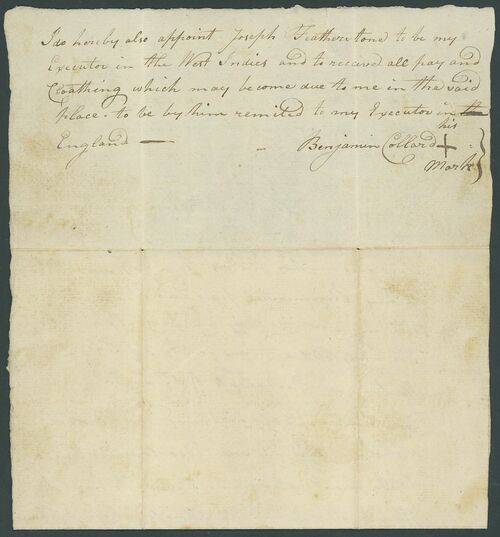 I do hereby also appoint Joseph Featherstone to be my
Executor in the West Indies and to receive all pay and
Cloathing which may become due to me in the said
place - to be by him remited to my Executor in th
England —
his
Benjamin Collard +
Mark